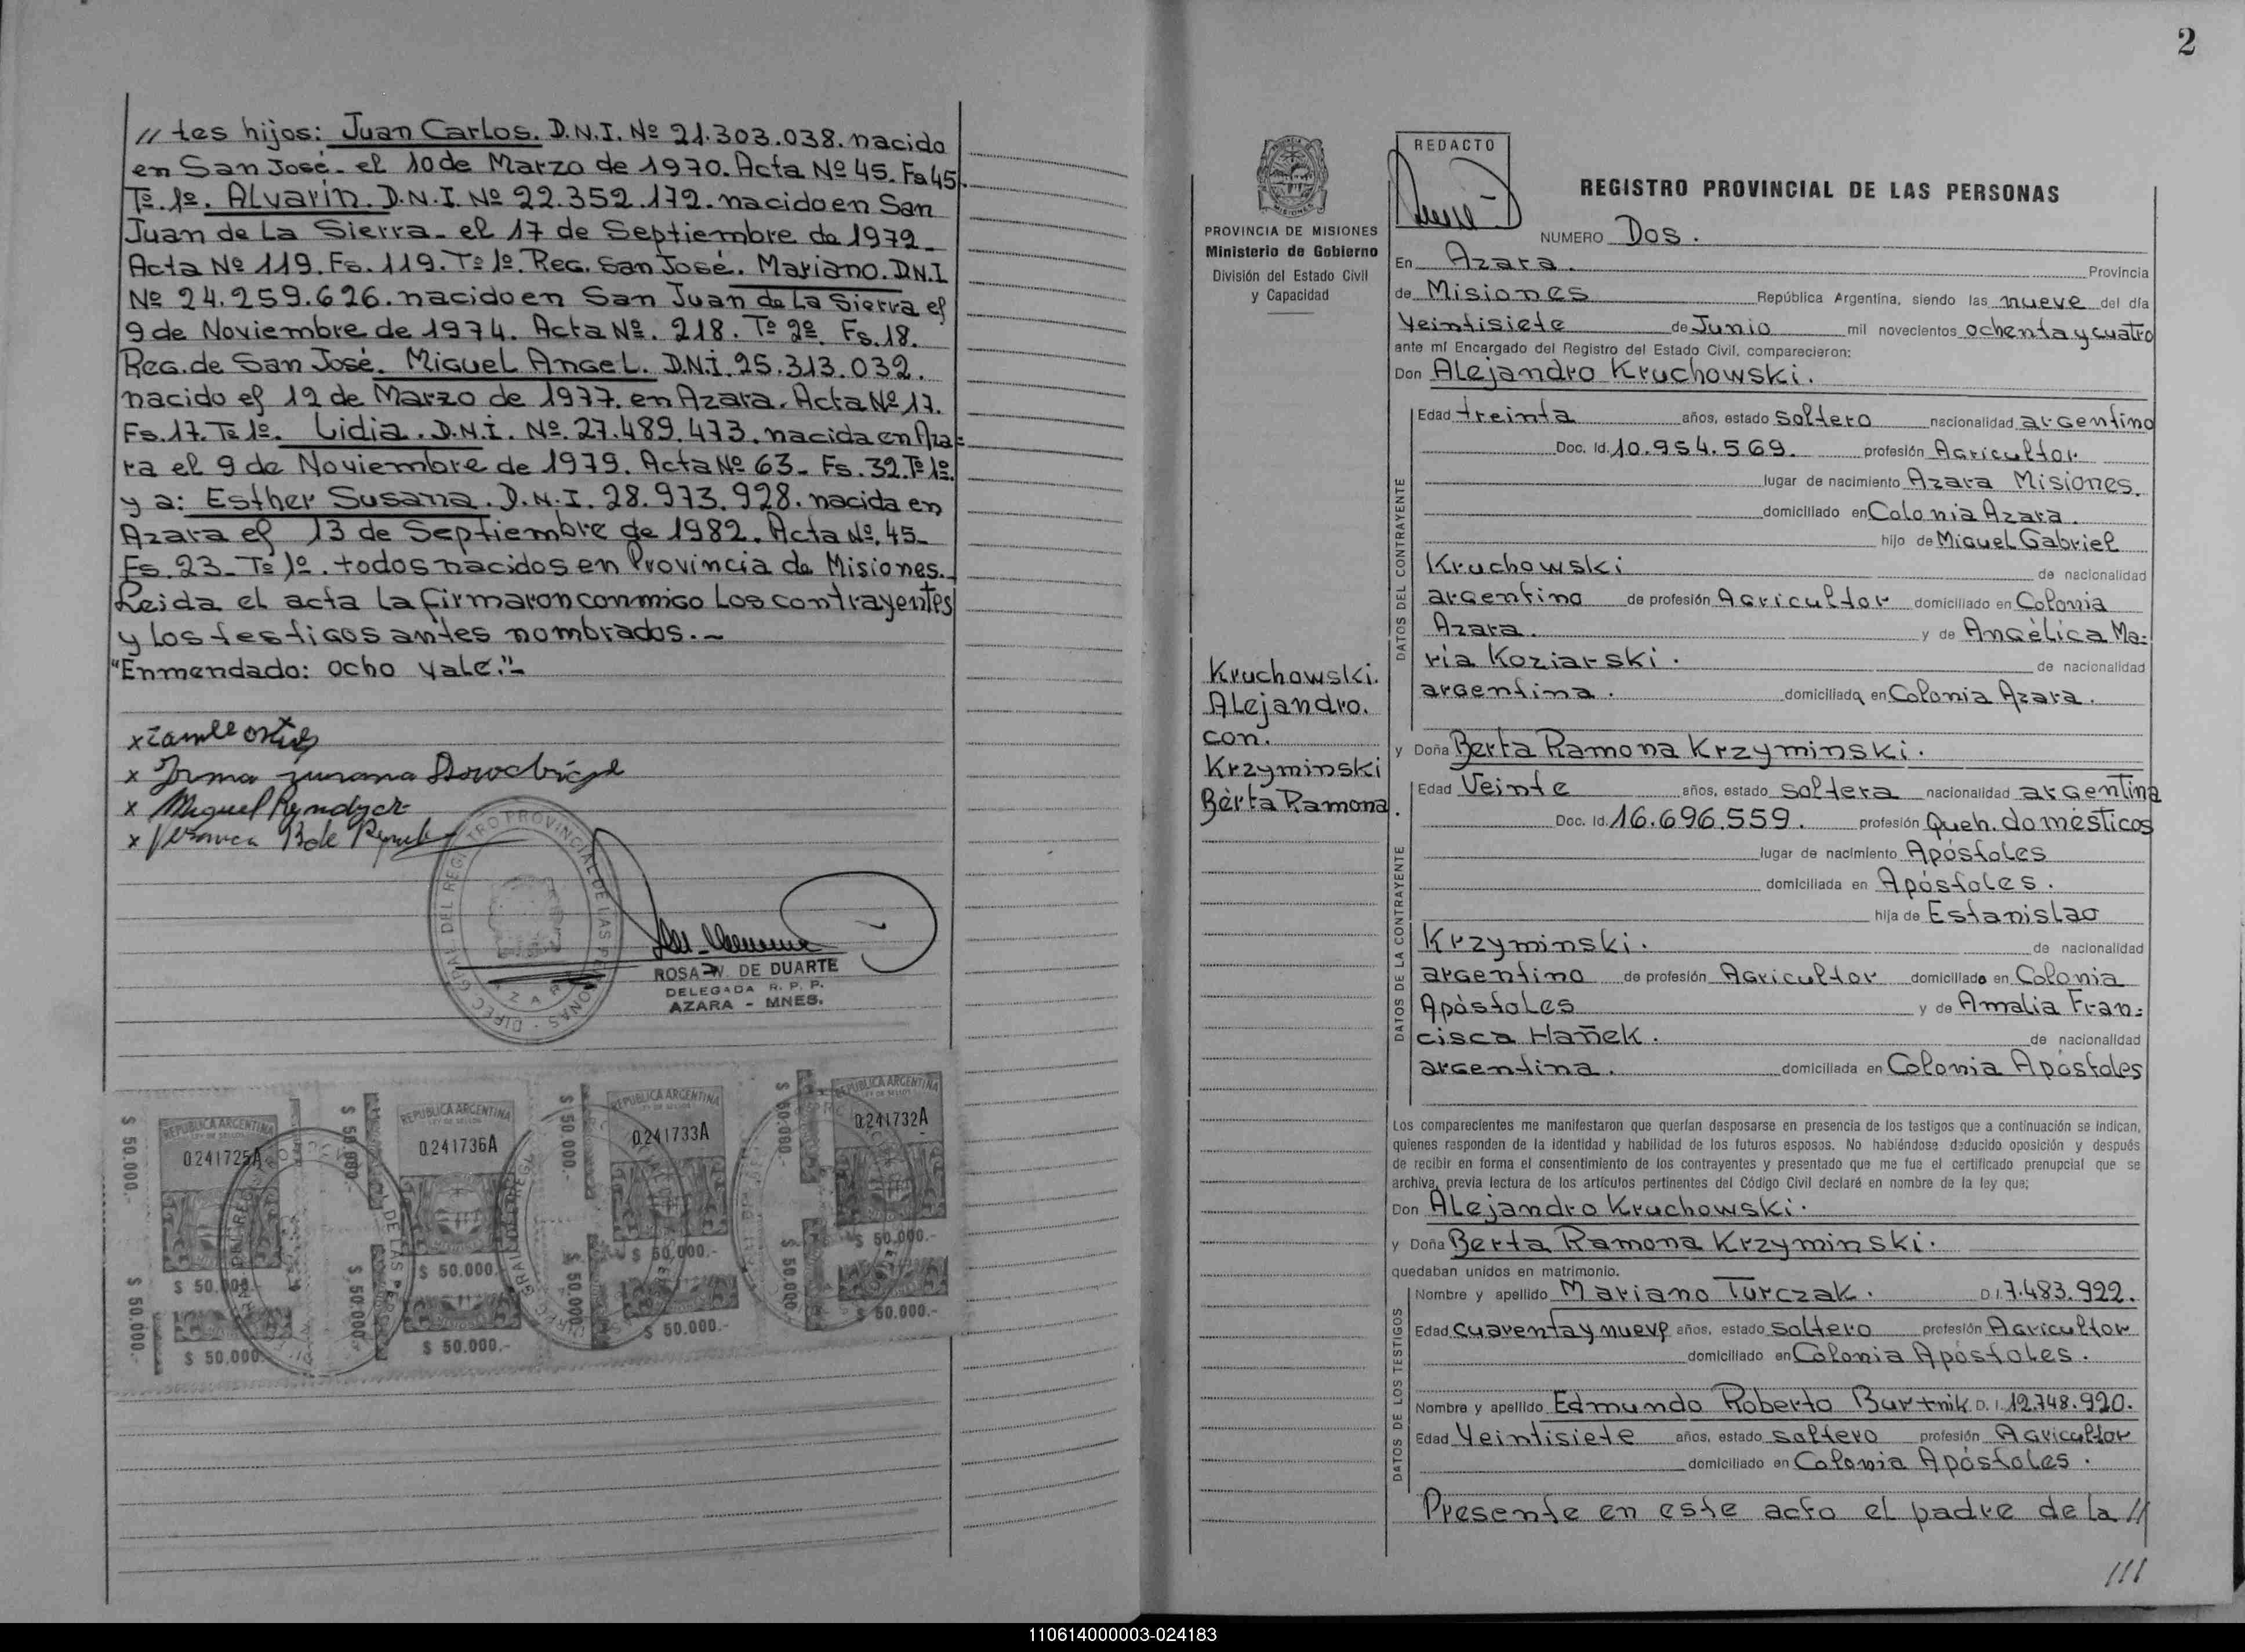 // tes hijos: Juan Carlos. D.N.I. Nº 21.303.038. nacido
en San José. el 10 de Marzo de 1970. Acta Nº 45. Fs 45.
Tº. 1º. Alvarín. D.N.I. Nº 22.352.172. nacido en San
Juan de La Sierra. el 17 de Septiembre de 1972.
Acta Nº 119. Fs. 119. Tº 1º. Reg. San José. Mariano. D.N.I
Nº 24.259.626. nacido en San Juan de La Sierra el
9 de Noviembre de 1974. Acta Nº. 218. Tº 2º. Fs. 18.
Reg. de San José. Miguel Angel. D.N.I. 25.313.032.
nacido el 12 de Marzo de 1977. en Azara. Acta Nº 17.
Fs. 17. Tº 1º. Lidia. D.N.I. Nº. 27.489.473. nacida en Aza=
ra el 9 de Noviembre de 1979. Acta Nº 63. Fs. 32. Tº 1º.
y a: Esther Susana. D.N.I. 28.973.928. nacida en
Azara el 13 de Septiembre de 1982. Acta Nº. 45.
Fs. 23. Tº 1º. todos nacidos en Provincia de Misiones.
Leida el acta la firmaron conmigo los contrayentes
y los testigos antes nombrados.-
"Enmendado: ocho vale."-
x
x Irma
x Miguel
x
DIREC. GRAL. DEL REGISTRO PROVINCIAL DE LAS PERSONAS
AZARA
ROSA W. DE DUARTE
DELEGADA R. P. P.
AZARA - MNES.
REPUBLICA ARGENTINA
0241725A
$ 50.000.-
$ 50.000.-
REPUBLICA ARGENTINA
0241736A
$ 50.000.-
$ 50.000.-
REPUBLICA ARGENTINA
0241733A
$ 50.000.-
$ 50.000.-
REPUBLICA ARGENTINA
0241732A
$ 50.000.-
$ 50.000.-
2
PROVINCIA DE MISIONES
Ministerio de Gobierno
División del Estado Civil
y Capacidad
Kruchowski.
Alejandro.
con.
Krzyminski
Berta Ramona.
REDACTO
REGISTRO PROVINCIAL DE LAS PERSONAS
NUMERO Dos.
En Azara. Provincia
de Misiones República Argentina, siendo las nueve del día
Veintisiete de Junio mil novecientos ochenta y cuatro
ante mí Encargado del Registro del Estado Civil, comparecieron:
Don Alejandro Kruchowski.
DATOS DEL CONTRAYENTE
Edad treinta años, estado soltero nacionalidad argentino
Doc. Id. 10.954.569. profesión Agricultor
lugar de nacimiento Azara Misiones.
domiciliado en Colonia Azara.
hijo de Miguel Gabriel
Kruchowski de nacionalidad
argentino de profesión Agricultor domiciliado en Colonia
Azara. y de Angélica Ma=
ria Koziarski. de nacionalidad
argentina. domiciliada en Colonia Azara.
y Doña Berta Ramona Krzyminski.
DATOS DE LA CONTRAYENTE
Edad Veinte años, estado soltera nacionalidad argentina
Doc. Id. 16.696.559. profesión Queh. domésticos
lugar de nacimiento Apóstoles
domiciliada en Apóstoles.
hija de Estanislao
Krzyminski. de nacionalidad
argentino de profesión Agricultor domiciliado en Colonia
Apóstoles y de Amalia Fran=
cisca Hañek. de nacionalidad
argentina. domiciliada en Colonia Apóstoles
Los comparecientes me manifestaron que querían desposarse en presencia de los testigos que a continuación se indican,
quienes responden de la identidad y habilidad de los futuros esposos. No habiéndose deducido oposición y después
de recibir en forma el consentimiento de los contrayentes y presentado que me fue el certificado prenupcial que se
archiva, previa lectura de los artículos pertinentes del Código Civil declaré en nombre de la ley que;
Don Alejandro Kruchowski.
y Doña Berta Ramona Krzyminski.
quedaban unidos en matrimonio.
DATOS DE LOS TESTIGOS
Nombre y apellido Mariano Turczak. D.I. 7.483.922.
Edad cuarenta y nueve años, estado soltero profesión Agricultor
domiciliado en Colonia Apóstoles.
Nombre y apellido Edmundo Roberto Burtnik D. I. 12.748.920.
Edad Veintisiete años, estado soltero profesión Agricultor
domiciliado en Colonia Apóstoles.
Presente en este acto el padre de la //
///
110614000003-024183